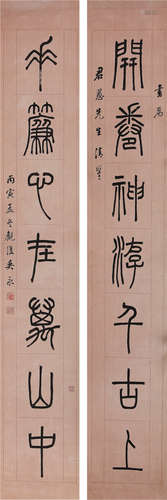 書為
開卷神游千古上
君慈先生清鑒
垂簾心在萬山中
丙寅孟冬觀復吳永